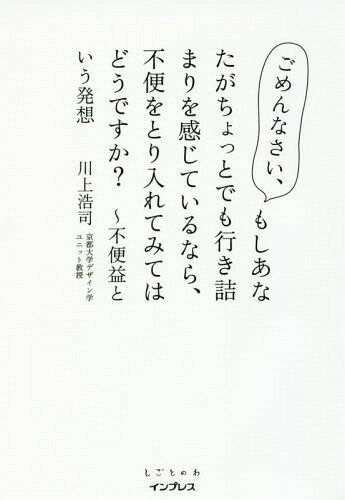 ごめんなさい、もしあな
たがちょっとでも行き詰
まりを感じているなら、
不便をとり入れてみては
どうですか？ ～不便益と
いう発想 川上浩司
京都大学デザイン学
ユニット教授
しごとのわ
インプレス